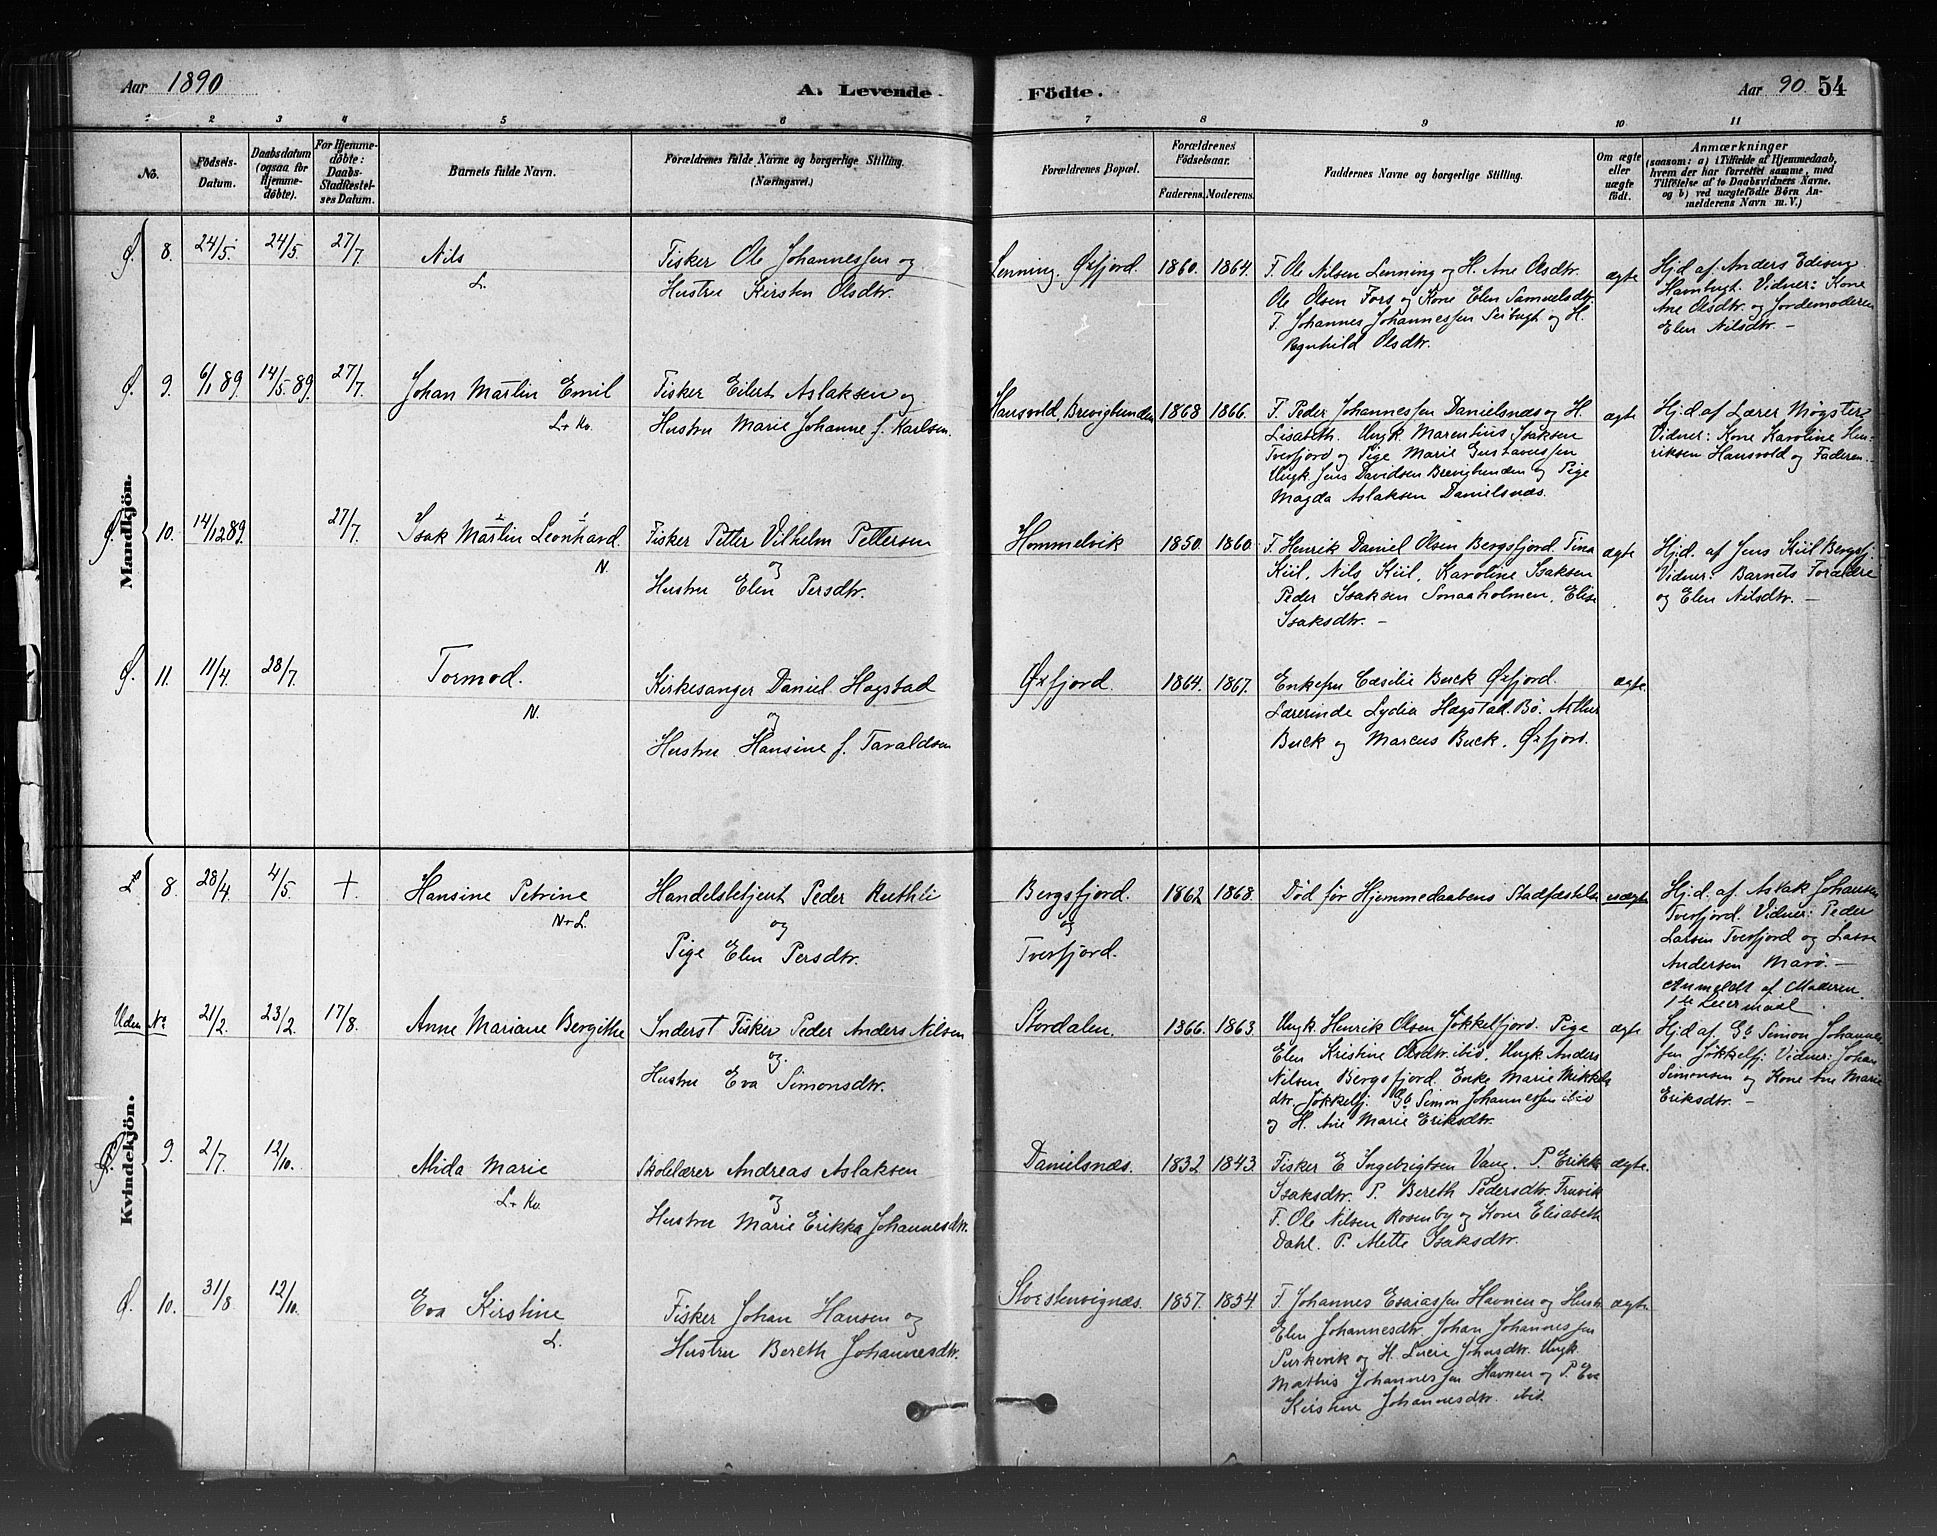 Aar 1890
A. Levende
Födte.
Aar 90 54
1 2 3 4 5 6 7 8 9 10 11
No.
Födsels-
Datum.
Daabsdatum
(ogsaa for
Hjemme-
döbte).
For Hjemme-
döbte:
Daabs-
Stadfæstel-
ses Datum.
Barnets fulde Navn.
Forældrenes fulde Navne og borgerlige Stilling.
(Næringsvei.)
Forældrenes Bopæl.
Forældrenes
Födselsaar.
Faderens. Moderens.
Faddernes Navne og borgerlige Stilling.
Om ægte
eller
uægte
födt.
Anmærkninger
(saasom: a) i Tilfælde af Hjemmedaab,
hvem der har forrettet samme, med
Tilföielse af to Daabsvidners Navne,
og b) ved uægtefödte Börn An-
melderens Navn m. V.)
Mandkjön.
Ø. 8. 24/5. 24/5. 27/7.
Nils
L.
Fisker Ole Johannessen og
Hustru Kirsten Olsdtr.
Lenning, Øxfjord. 1860. 1864.
F. Ole Nilsen Lenning og H. Ane Olsdtr.
Ole Olsen Fors og Kone Elen Samuelsdtr
F. Johannes Johannessen Seibugt og H.
Ragnhild Olsdtr.
ægte
Hj.d af. Anders Edisen
Havnbugt. Vidner: Kone
Ane Olsdtr. og Jordemoderen
Elen Nilsdtr. –
Ø 9. 6/1 89 14/5. 89. 27/7.
Johan Martin Emil
L. Kv.
Fisker Eilert Aslaksen og
Hustru Marie Johanne f. Karlsen.
Hansvold, Brevigbunden 1868 1866.
F. Peder Johannessen Danielsnæs og H.
Lisabeth. Ungk. Marentius Isaksen
Tverfjord og Pige Marie Gustavussen
Ungk. Jens Davidsen Brevigbunden og Pige
Magda Aslaksen Danielsnæs.
ægte
Hj.d af Lærer Møgster
Vidner: Kone Karoline Hen-
riksen Hansvold og Faderen. –
Ø. 10. 14/12 89. 27/7
Isak Martin Leonhard.
N.
Fisker Petter Vilhelm Pettersen
og
Hustru Elen Persdtr.
Hommelvik 1850. 1860.
F. Henrik Daniel Olsen Bergsfjord. Tina
Kiil, Nils Kiil, Karoline Isaksen
Peder Isaksen Smaaholmen, Elise
Isaksdtr. –
ægte
Hj.d. af Jens Kiil Bergsfj.
Vidner: Barnets Forældre
og Elen Nilsdtr. –
Ø. 11. 11/4. 28/7.
Tormod.
N.
Kirkesanger Daniel Hagstad
og
Hustru Hansine f. Taraldsen
Øxfjord. 1864. 1867.
Enkefru Cæsilie Buck Øxfjord.
Lærerinde Lydia Hagstad. Bø. Arthur
Buck og Marcus Buck, Øxfjord.
ægte.
Kvindekjön.
8. 28/4. 4/5. +.
Hansine Petrine
N. L.
Handelsbetjent Peder Ruthli
og
Pige Elen Persdtr.
Bergsfjord.
og
Tverfjord.
1862 1868.
Død før Hjemmedaabens Stadfæstelse
uægte
Hj.d. af Aslak Johansen
Tverfjord. Vidner: Peder
Larsen Tverfjord og Lasse
Andersen Marø. –
Anmeldt af Moderen.
1ste Leiermaal.
Uden No 21/2. 23/2. 17/8.
Anne Mariane Bergithe
Inderst Fisker Peder Anders Nilsen
og
Hustru Eva Simonsdtr.
Stordalen. 1866. 1863.
Ungk. Henrik Olsen Jøkkelfjord. Pige
Elen Kristine Olsdtr. ibid. Ungk. Anders
Nilsen Bergsfjord. Enke Marie Mikkels
dtr. Jøkkelfj. G. Simon Johannessen ibid
og H. Ane Marie Eriksdtr.
ægte
Hj.d af G. Simon Johannes
sen Jøkkelfj. Vidner: Johan
Simonsen og Kone Ane Marie
Eriksdtr. –
9. 2/7. 12/10.
Alida Marie
L. Kv.
Skolelærer Andreas Aslaksen
og
Hustru Marie Erikka Johannesdtr.
Danielsnæs. 1832 1843.
Fisker E Ingebrigtsen Vang. P. Erikka
Isaksdtr. P. Bereth Pedersdtr.
F. Ole Nilsen Rosenby og Kone Elisabeth
Dahl. P. Mette Isaksdtr.
ægte.
Ø. 10. 31/8. 12/10.
Eva Kirstine
L.
Fisker Johan Hansen og
Hustru Bereth Johannesdtr.
Storstenvignæs. 1857. 1854
F. Johannes Esaiassen Havnen og Hustr.
Elen Johannesdtr. Johan Johannessen
og H. Lucie Johnsdtr. Ungk.
Mathis Johannessen Havnen og P. Eva
Kirstine Johannesdtr. ibid.
ægte